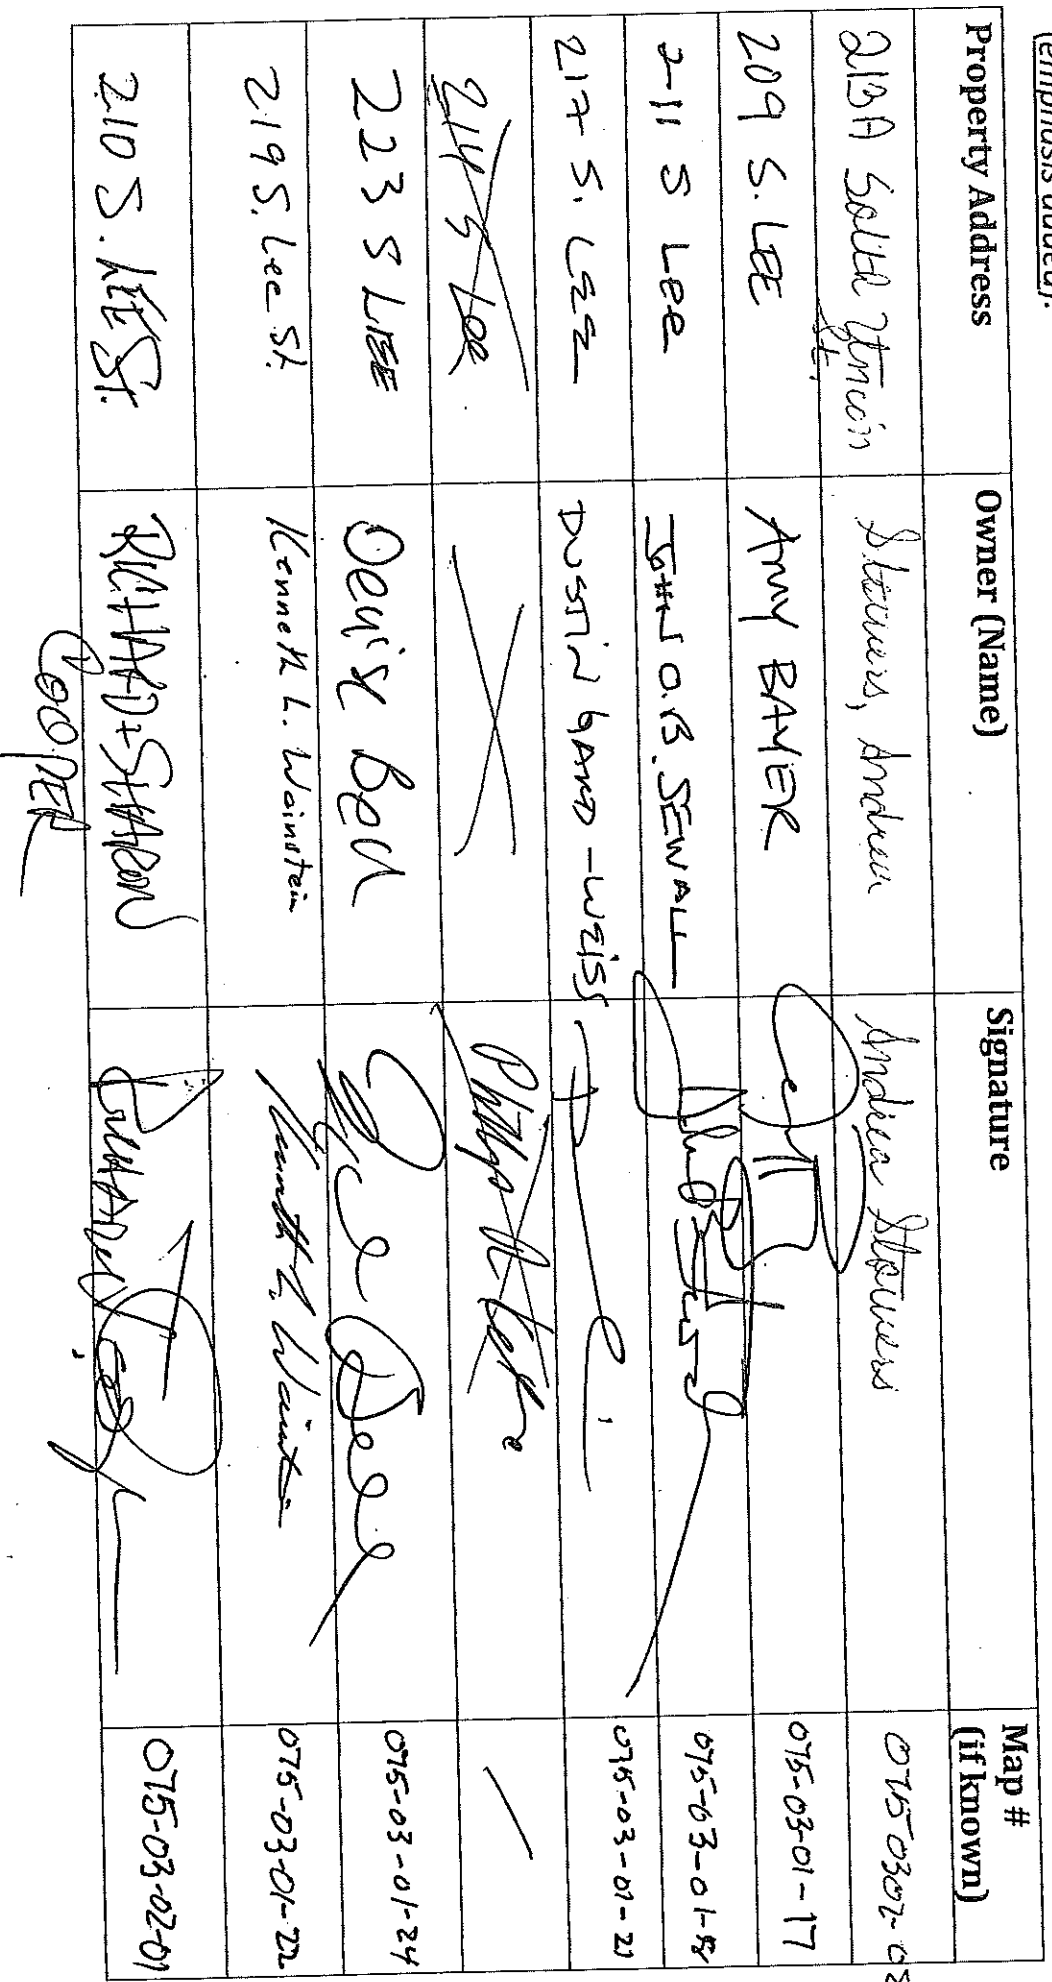 (emphasis added).
Property Address Owner (Name) Signature Map # (if known)
213A South Union St. Stowers, Andrea Andrea Stowers 075 0302-03
209 S. LEE AMY BAYER 075-03-01-17
211 S Lee JOHN O.B. SEWALL 075-03-01-18
217 S. LEE DUSTIN GARD-WEISS 075-03-01-21
214 S Lee
223 S LEE Denise Bell 075-03-01-24
219 S. Lee St. Kenneth L. Wainstein Kenneth L. Wainstein 075-03-01-22
210 S. LEE St. RICHARD + SHARON COOPER 075-03-02-01